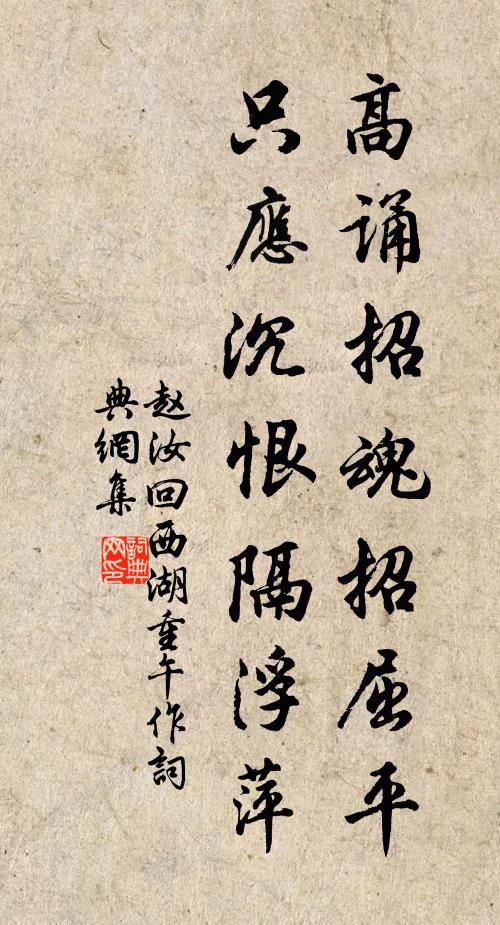 高诵招魂招屈平
只應沉恨隔浮萍
赵汝回西湖重午作詞
典網集
詞典
网印